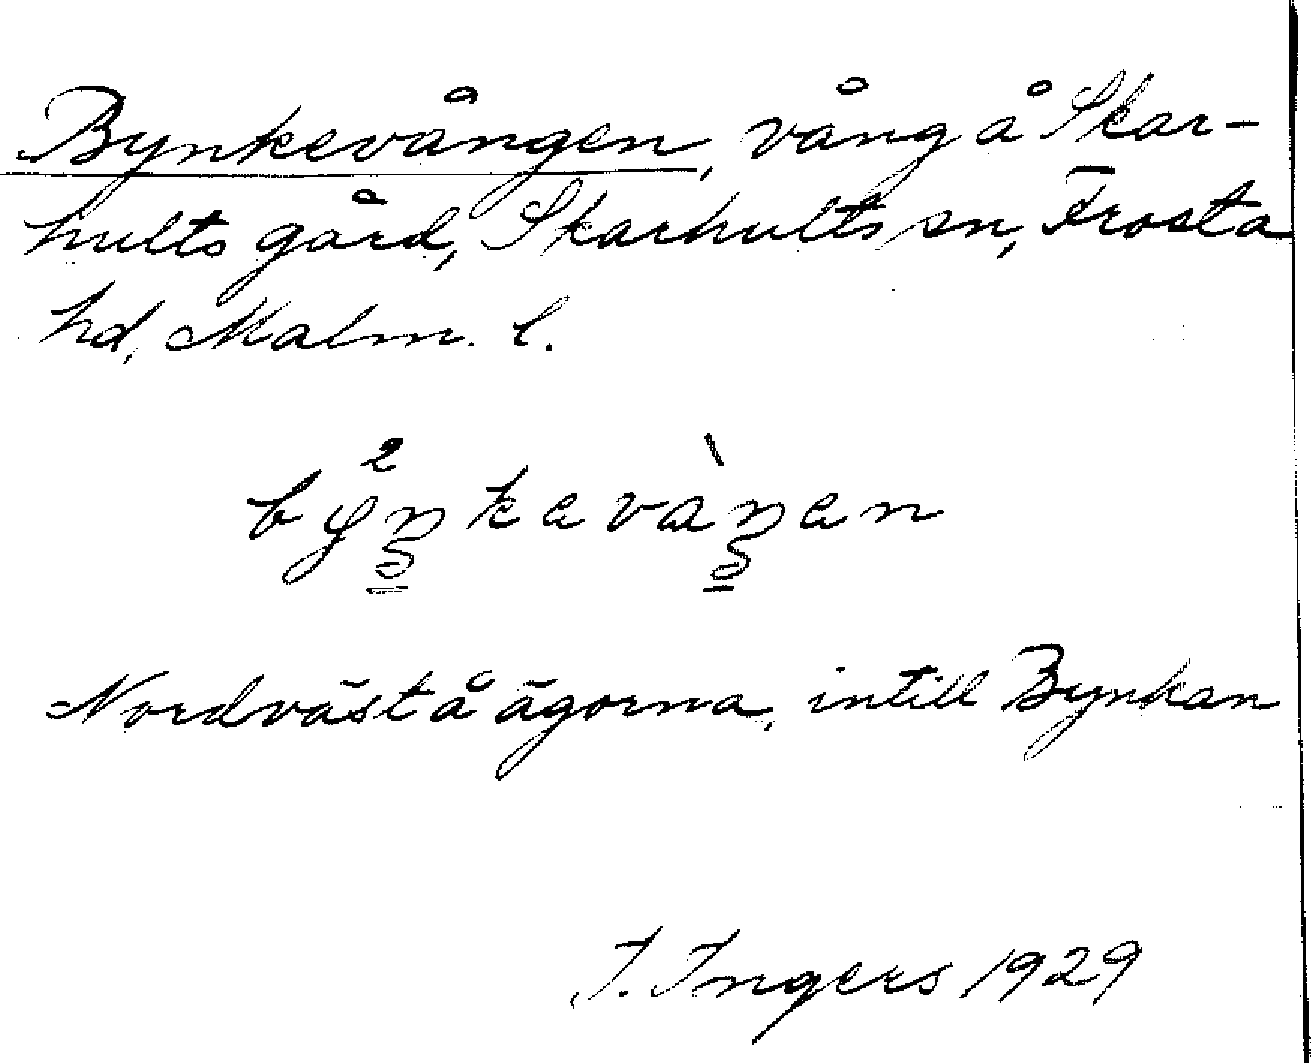 Bynkevången, vång å Skar-
hults gård, Skarhults sn, Frosta
hd, Malm. l.
by²ŋkevàŋen
Nordväst å ägorna, intill Bynkan
I. Ingers 1929